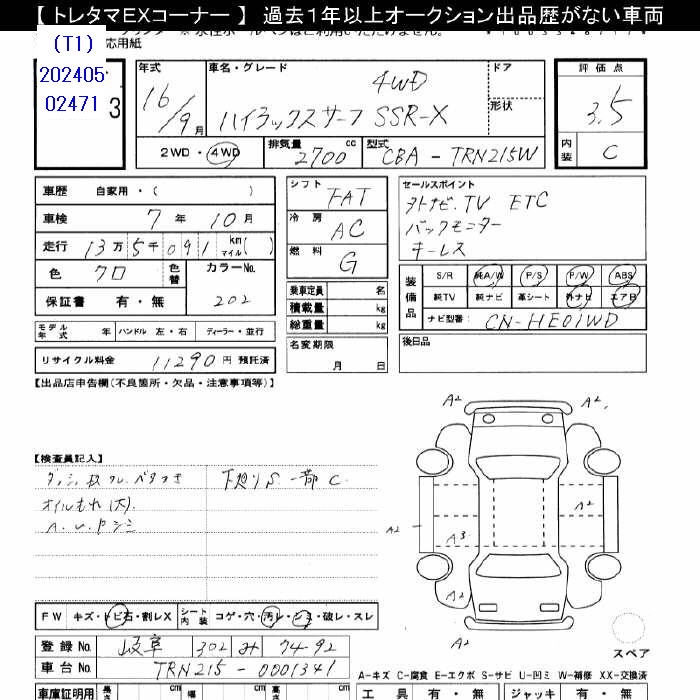 【トレタマEXコーナー】 過去1年以上オークション出品歴がない車両
(T1)
202405
02471
応用紙
3
年式 車名・グレード ドア 評価点
16/9月 ハイラックスサーフ SSR-X 4WD 形状 3.5
2WD・4WD 排気量 2700 cc 型式 CBA-TRN215W 内装 C
車歴 自家用・( )
車検 7年 10月
走行 13万5千091 km マイル( )
色 クロ 色替 カラーNo. 202
保証書 有・無
シフト FAT
冷房 AC
燃料 G
乗車定員 名
積載量 kg
総重量 kg
セールスポイント
外ナビ.TV ETC
バックモニター
キーレス
装備品 S/R 純A/W P/S P/W ABS
純TV 純ナビ 革シート 外ナビ エアB
ナビ型番: CN-HE01WD
モデル年式 年 ハンドル 左・右 ディーラー・並行
名変期限 月 日
後日品
リサイクル料金 11290 円 預託済
【出品店申告欄(不良箇所・欠品・注意事項等)】
【検査員記入】
下廻りS 一部C
オイルもれ(大)
A2 A2
A2 A3 A2
A2
A2
FW キズ・トビ石・割レX シート内装 コゲ・穴・汚レ・シミ・破レ・スレ
スペア
登録No. 岐阜 302 み 7492
車台No. TRN215-0001341
A-キズ C-腐食 E-エクボ S-サビ U-凹ミ W-補修 XX-交換済
車庫証明用 長さ cm 幅 cm 高さ cm 工具 有・無 ジャッキ 有・無